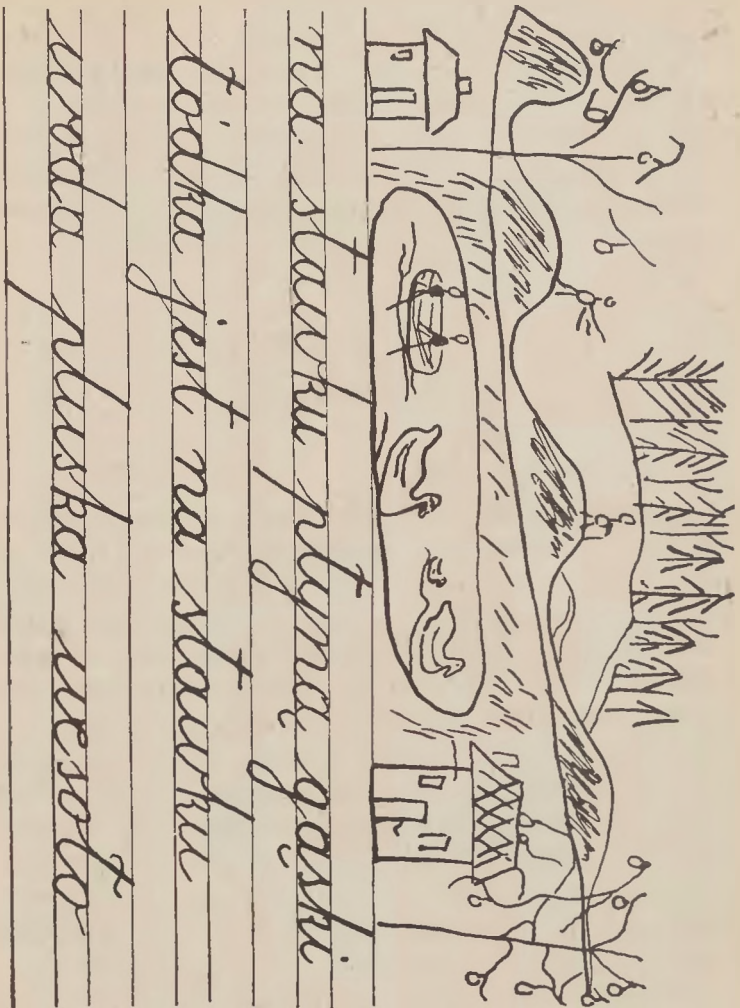 na stawku płyną gąski
łódka jest na stawku
woda pluska wesoło